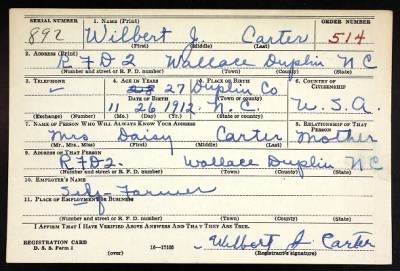 SERIAL NUMBER 1. NAME (Print) ORDER NUMBER
892 Wilbert J. Carter 514
(First) (Middle) (Last)
2. ADDRESS (Print)
RFD2 Wallace Duplin N C
(Number and street or R. F. D. number) (Town) (County) (State)
3. TELEPHONE 4. AGE IN YEARS 5. PLACE OF BIRTH 6. COUNTRY OF CITIZENSHIP
27 Duplin Co
DATE OF BIRTH
11 26 1912. N. C. U. S. A.
(Exchange) (Number) (Mo.) (Day) (Yr.) (State or country)
7. NAME OF PERSON WHO WILL ALWAYS KNOW YOUR ADDRESS 8. RELATIONSHIP OF THAT PERSON
Mrs Daisy Carter Mother
(Mr., Mrs., Miss) (First) (Middle) (Last)
9. ADDRESS OF THAT PERSON
RFD2. Wallace Duplin N C
(Number and street or R. F. D. number) (Town) (County) (State)
10. EMPLOYER'S NAME
Self-Farmer
11. PLACE OF EMPLOYMENT OR BUSINESS
(Number and street or R. F. D. number) (Town) (County) (State)
I AFFIRM THAT I HAVE VERIFIED ABOVE ANSWERS AND THAT THEY ARE TRUE.
REGISTRATION CARD
D. S. S. Form 1 (over) 16—17105 Wilbert J Carter
(Registrant's signature)